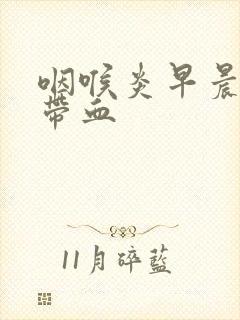 咽喉炎早晨
带血
11月碎蓝